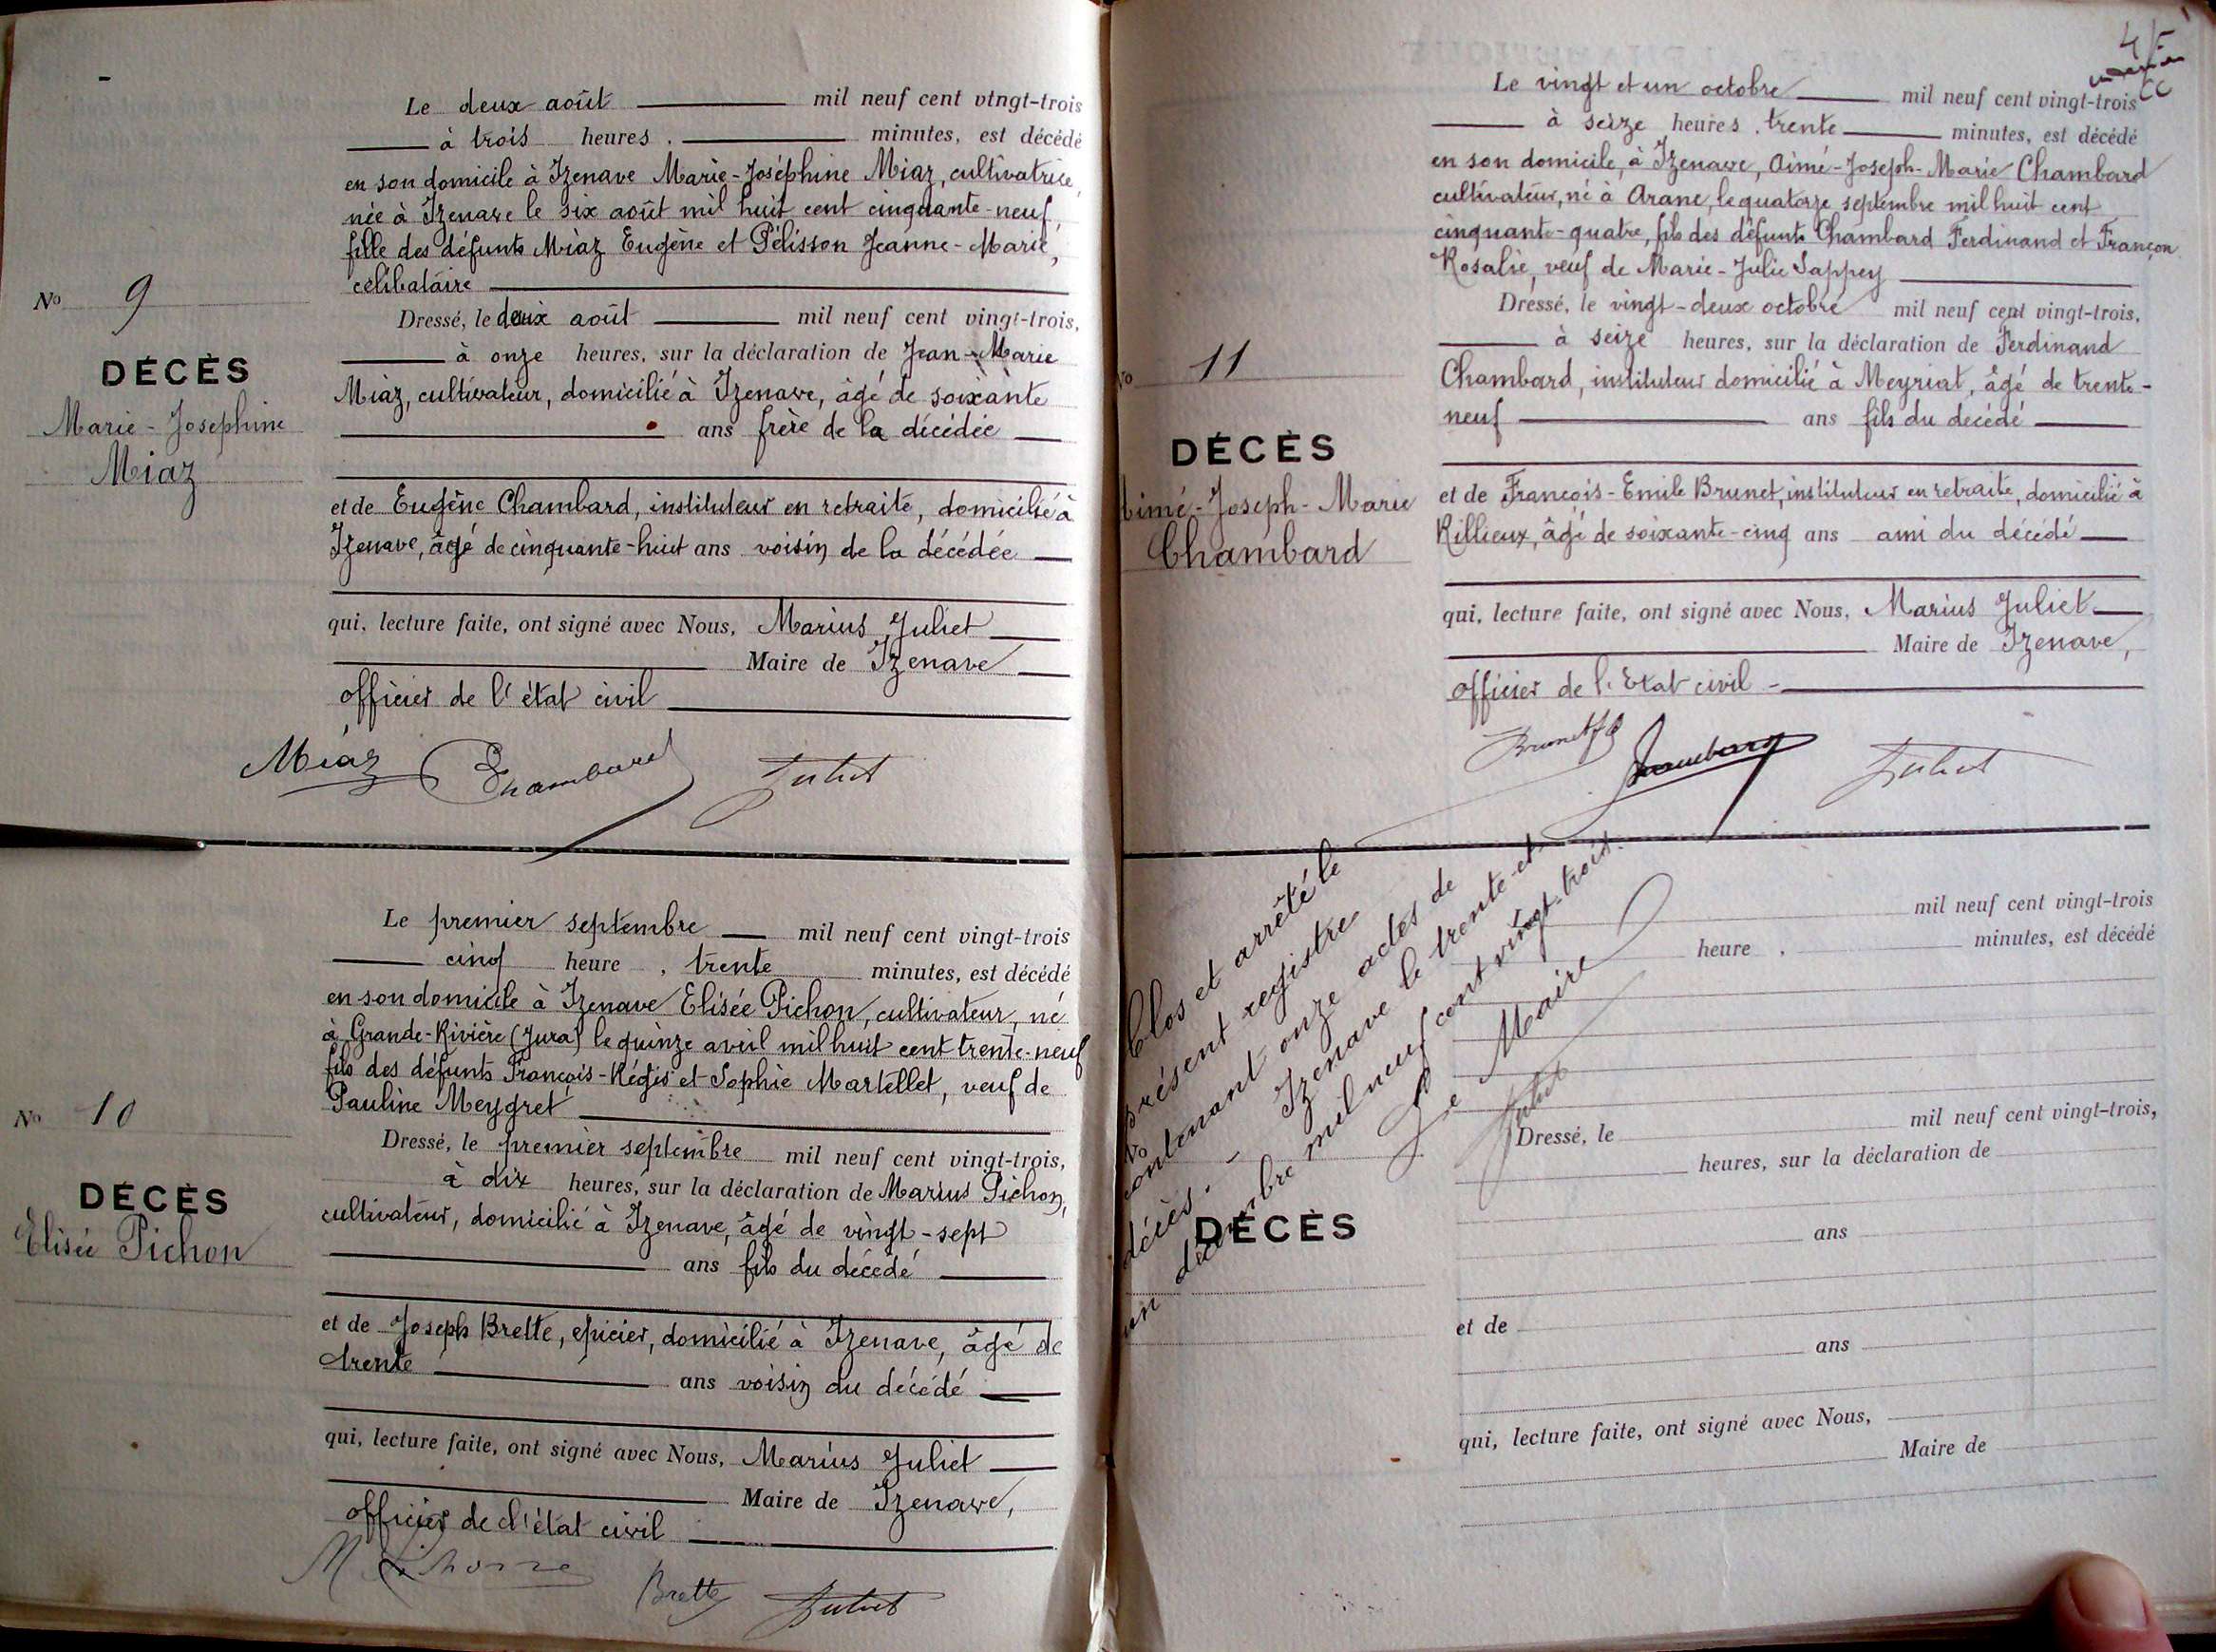 Le deux août mil neuf cent vingt-trois
à trois heures . minutes, est décédé
en son domicile à Izenave Marie-Joséphine Miaz, cultivatrice,
née à Izenave le six août mil huit cent cinquante-neuf
fille des défunts Miaz Eugène et Pélisson Jeanne-Marie,
célibataire
No 9
DÉCÈS
Marie-Josephine
Miaz
Dressé, le deux août mil neuf cent vingt-trois,
à onze heures, sur la déclaration de Jean-Marie
Miaz, cultivateur, domicilié à Izenave, âgé de soixante
ans frère de la décédée
et de Eugène Chambard, instituteur en retraite, domicilié à
Izenave, âgé de cinquante-huit ans voisin de la décédée
qui, lecture faite, ont signé avec Nous, Marius Juliet
Maire de Izenave
officier de l'état civil
Miaz Chambard Juliet
Le premier septembre mil neuf cent vingt-trois
cinq heure , trente minutes, est décédé
en son domicile à Izenave Elisée Pichon, cultivateur, né
à Grande-Rivière (Jura) le quinze avril mil huit cent trente-neuf
fils des défunts François-Régis et Sophie Martellet, veuf de
Pauline Meygret
No 10
DÉCÈS
Elisée Pichon
Dressé, le premier septembre mil neuf cent vingt-trois,
à dix heures, sur la déclaration de Marius Pichon,
cultivateur, domicilié à Izenave, âgé de vingt-sept
ans fils du décédé
et de Joseph Brette, epicier, domicilié à Izenave, âgé de
trente ans voisin du décédé
qui, lecture faite, ont signé avec Nous, Marius Juliet
Maire de Izenave,
officier de l'état civil
Brette Juliet
Le vingt et un octobre mil neuf cent vingt-trois
à seize heures . trente minutes, est décédé
en son domicile, à Izenave, Aimé-Joseph-Marie Chambard
cultivateur, né à Aranc, le quatorze septembre mil huit cent
cinquante-quatre, fils des défunts Chambard Ferdinand et Françon
Rosalie, veuf de Marie-Julie Sappey
No 11
DÉCÈS
Aimé-Joseph-Marie
Chambard
Dressé, le vingt-deux octobre mil neuf cent vingt-trois,
à seize heures, sur la déclaration de Ferdinand
Chambard, instituteur domicilié à Meyriat, âgé de trente-
neuf ans fils du décédé
et de François-Emile Brunet, instituteur en retraite, domicilié à
Rillieux, âgé de soixante-cinq ans ami du décédé
qui, lecture faite, ont signé avec Nous, Marius Juliet
Maire de Izenave,
officier de l'Etat civil -
Brunet Chambard Juliet
Clos et arrêté le
présent registre
contenant onze actes de
décès. - Izenave le trente et
un décembre mil neuf cent vingt-trois.
Le Maire
Juliet
mil neuf cent vingt-trois
heure , minutes, est décédé
No
DÉCÈS
Dressé, le mil neuf cent vingt-trois,
heures, sur la déclaration de
ans
et de
ans
qui, lecture faite, ont signé avec Nous,
Maire de